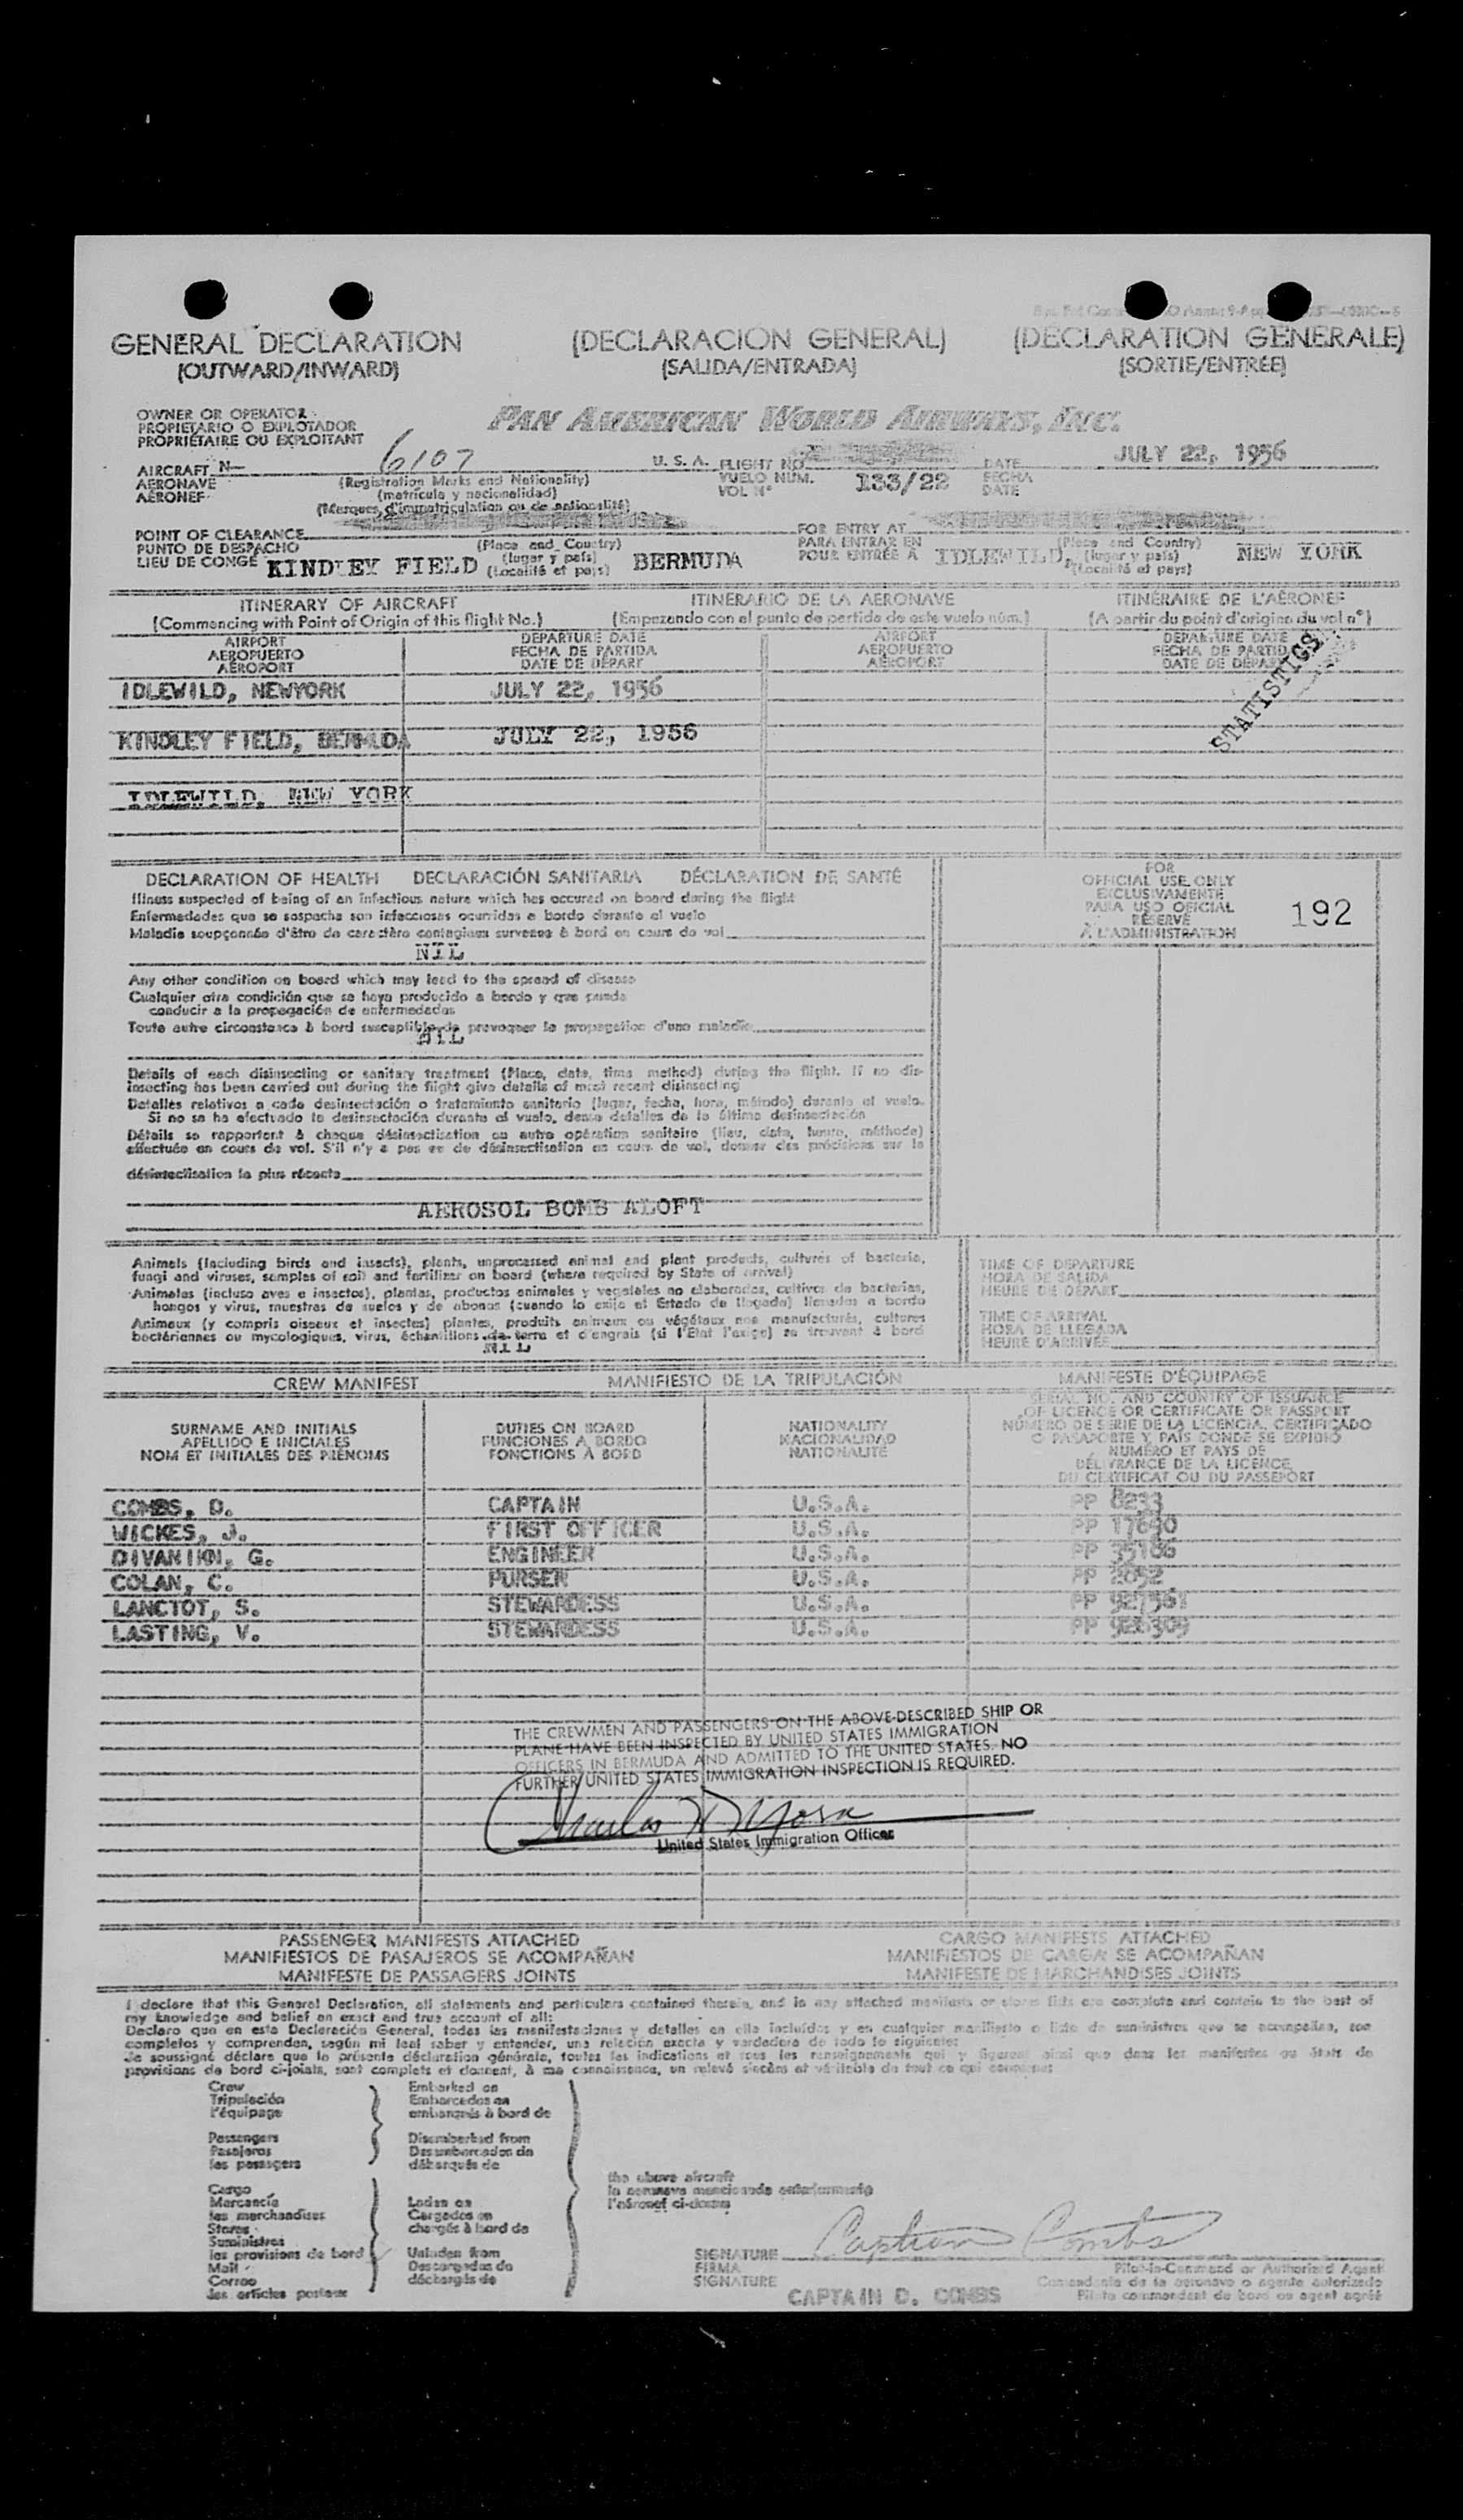 GENERAL DECLARATION (DECLARACIÓN GENERAL) (DÉCLARATION GÉNÉRALE)
(OUTWARD/INWARD) (SALIDA/ENTRADA) (SORTIE/ENTRÉE)
OWNER OR OPERATOR
PROPIETARIO O EXPLOTADOR
PROPRIÉTAIRE OU EXPLOITANT
PAN AMERICAN WORLD AIRWAYS, INC.
AIRCRAFT N- 6107 U. S. A. FLIGHT NO. DATE JULY 22, 1956
AERONAVE (Registration Marks and Nationality) VUELO NÚM. 133/22 FECHA
AÉRONEF (matrícula y nacionalidad) VOL Nº DATE
(Marques d'immatriculation ou de nationalité)
POINT OF CLEARANCE (Place and Country) FOR ENTRY AT (Place and Country)
PUNTO DE DESPACHO (lugar y país) PARA ENTRAR EN (lugar y país)
LIEU DE CONGÉ KINDLEY FIELD (Localité et pays) BERMUDA POUR ENTRÉE À IDLEWILD, (Localité et pays) NEW YORK
ITINERARY OF AIRCRAFT ITINERARIO DE LA AERONAVE ITINÉRAIRE DE L'AÉRONEF
(Commencing with Point of Origin of this flight No.) (Empezando con el punto de partida de este vuelo núm.) (A partir du point d'origine du vol nº)
AIRPORT DEPARTURE DATE AIRPORT DEPARTURE DATE
AEROPUERTO FECHA DE PARTIDA AEROPUERTO FECHA DE PARTIDA
AÉROPORT DATE DE DÉPART AÉROPORT DATE DE DÉPART
STATISTICS
IDLEWILD, NEWYORK JULY 22, 1956
KINDLEY FIELD, BERMUDA JULY 22, 1956
IDLEWILD, NEW YORK
DECLARATION OF HEALTH DECLARACIÓN SANITARIA DÉCLARATION DE SANTÉ
Illness suspected of being of an infectious nature which has occured on board during the flight
Enfermedades que se sospecha son infecciosas ocurridas a bordo durante el vuelo
Maladie soupçonnée d'être de caractère contagieux survenue à bord en cours de vol
NIL
FOR
OFFICIAL USE ONLY
EXCLUSIVAMENTE
PARA USO OFICIAL
RÉSERVÉ
À L'ADMINISTRATION
192
Any other condition on board which may lead to the spread of disease
Cualquier otra condición que se haya producido a bordo y que pueda
conducir a la propagación de enfermedades
Toute autre circonstance à bord susceptible de provoquer la propagation d'une maladie
NIL
Details of each disinsecting or sanitary treatment (Place, date, time method) during the flight. If no dis-
insecting has been carried out during the flight give details of most recent disinsecting
Detalles relativos a cada desinsectación o tratamiento sanitario (lugar, fecha, hora, método) durante el vuelo.
Si no se ha efectuado la desinsectación durante el vuelo, dense detalles de la última desinsectación
Détails se rapportant à chaque désinsectisation ou autre opération sanitaire (lieu, date, heure, méthode)
effectuée en cours de vol. S'il n'y a pas eu de désinsectisation en cours de vol, donner des précisions sur la
désinsectisation la plus récente
AEROSOL BOMB ALOFT
Animals (Including birds and insects), plants, unprocessed animal and plant products, cultures of bacteria,
fungi and viruses, samples of soil and fertilizer on board (where required by State of arrival)
Animales (incluso aves e insectos), plantas, productos animales y vegetales no elaborados, cultivos de bacterias,
hongos y virus, muestras de suelos y de abonos (cuando lo exija el Estado de llegada) llevados a bordo
Animaux (y compris oiseaux et insectes) plantes, produits animaux ou végétaux non manufacturés, cultures
bactériennes ou mycologiques, virus, échantillons de terre et d'engrais (si l'Etat l'exige) se trouvant à bord
NIL
TIME OF DEPARTURE
HORA DE SALIDA
HEURE DE DÉPART
TIME OF ARRIVAL
HORA DE LLEGADA
HEURE D'ARRIVÉE
CREW MANIFEST MANIFIESTO DE LA TRIPULACIÓN MANIFESTE D'ÉQUIPAGE
SURNAME AND INITIALS
APELLIDO E INICIALES
NOM ET INITIALES DES PRÉNOMS
DUTIES ON BOARD
FUNCIONES A BORDO
FONCTIONS À BORD
NATIONALITY
NACIONALIDAD
NATIONALITÉ
SERIAL NO. AND COUNTRY OF ISSUANCE
OF LICENCE OR CERTIFICATE OR PASSPORT
NÚMERO DE SERIE DE LA LICENCIA, CERTIFICADO
O PASAPORTE Y PAÍS DONDE SE EXPIDIÓ
NUMÉRO ET PAYS DE
DÉLIVRANCE DE LA LICENCE,
DU CERTIFICAT OU DU PASSEPORT
COMBS, D. CAPTAIN U.S.A. PP 8233
WICKES, J. FIRST OFFICER U.S.A. PP 17690
DIVANIHN, G. ENGINEER U.S.A. PP 35186
COLAN, C. PURSER U.S.A. PP 2052
LANCTOT, S. STEWARDESS U.S.A. PP
LASTING, V. STEWARDESS U.S.A. PP 926309
THE CREWMEN AND PASSENGERS ON THE ABOVE-DESCRIBED SHIP OR
PLANE HAVE BEEN INSPECTED BY UNITED STATES IMMIGRATION
OFFICERS IN BERMUDA AND ADMITTED TO THE UNITED STATES. NO
FURTHER UNITED STATES IMMIGRATION INSPECTION IS REQUIRED.
Charles
United States Immigration Officer
PASSENGER MANIFESTS ATTACHED CARGO MANIFESTS ATTACHED
MANIFIESTOS DE PASAJEROS SE ACOMPAÑAN MANIFIESTOS DE CARGA SE ACOMPAÑAN
MANIFESTE DE PASSAGERS JOINTS MANIFESTE DE MARCHANDISES JOINTS
I declare that this General Declaration, all statements and particulars contained therein, and in any attached manifests or stores lists are complete and contain to the best of
my knowledge and belief an exact and true account of all:
Declaro que en esta Declaración General, todas las manifestaciones y detalles en ella incluídos y en cualquier manifiesto o lista de suministros que se acompañan, son
completos y comprenden, según mi leal saber y entender, una relación exacta y verdadera de todo lo siguiente:
Je soussigné déclare que la présente déclaration générale, toutes les indications et tous les renseignements qui y figurent ainsi que dans les manifestes ou états de
provisions de bord ci-joints, sont complets et donnent, à ma connaissance, un relevé sincère et véritable de tout ce qui concerne:
Crew Embarked on
Tripulación Embarcados en
l'équipage embarqués à bord de
Passengers Disembarked from
Pasajeros Desembarcados de
les passagers débarqués de
the above aircraft
la aeronave mencionada anteriormente
l'aéronef ci-dessus
Cargo
Mercancía Laden on
les marchandises Cargados en
Stores chargés à bord de
Suministros
les provisions de bord Unladen from
Mail Descargados de
Correo déchargés de
les articles postaux
SIGNATURE Captain Combs
FIRMA
SIGNATURE
CAPTAIN D. COMBS
Pilot-in-Command or Authorized Agent
Comandante de la aeronave o agente autorizado
Pilote commandant de bord ou agent agréé